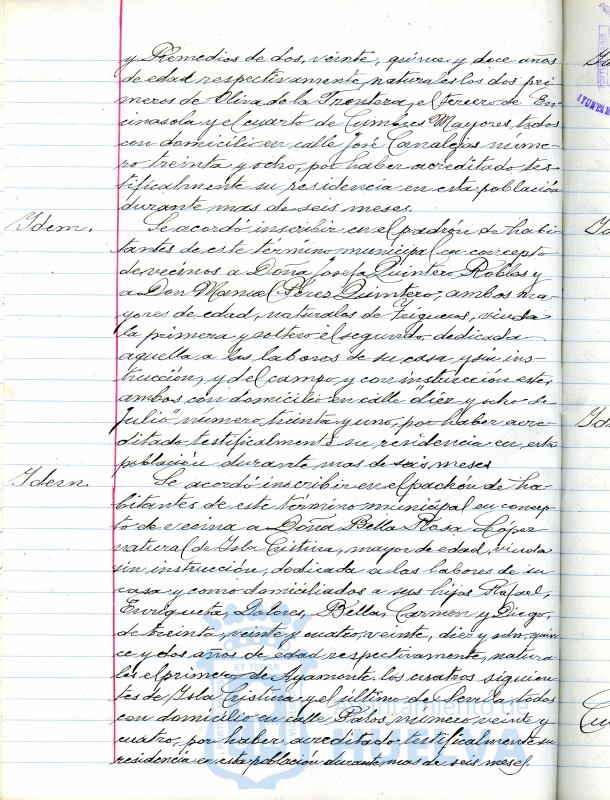 y Remedios de dos, veinte, quince y doce años
de edad respectivamente, naturales los dos pri-
meros de Oliva de la Frontera, el tercero de En-
cinasola y el cuarto de Cumbres Mayores, todos
con domicilio en calle José Canalejas núme-
ro treinta y ocho, por haber acreditado tes-
tificalmente su residencia en esta población
durante mas de seis meses.
Idem.
Se acordó inscribir en el padrón de habi-
tantes de este término municipal en concepto
de vecinos a Doña Josefa Quintero Robles y
a Don Manuel Pérez Quintero, ambos ma-
yores de edad, naturales de Trigueros, viuda
la primera y soltero el segundo, dedicada
aquella a las labores de su casa y sin ins-
trucción, y del campo y con instrucción este,
ambos con domicilio en calle diez y ocho de
Julio número treinta y uno, por haber acre-
ditado testificalmente su residencia en esta
población durante mas de seis meses
Idem.
Se acordó inscribir en el padrón de ha-
bitantes de este término municipal en concep-
to de vecina a Doña Bella Rosa López
natural de Isla Cristina, mayor de edad, viuda
sin instrucción, dedicada a las labores de su
casa y como domiciliados a sus hijos Rafael,
Enriqueta, Dolores, Bella, Carmen y Diego,
de treinta, veinte y cuatro, veinte, diez y ocho, quin-
ce y dos años de edad respectivamente, natura-
les el primero de Ayamonte, los cuatros siguien-
tes de Isla Cristina y el último de todos
con domicilio en calle Palos, número veinte y
cuatro, por haber acreditado testificalmente su
residencia en esta población durante mas de seis meses.
Ayuntamiento de
HUELVA